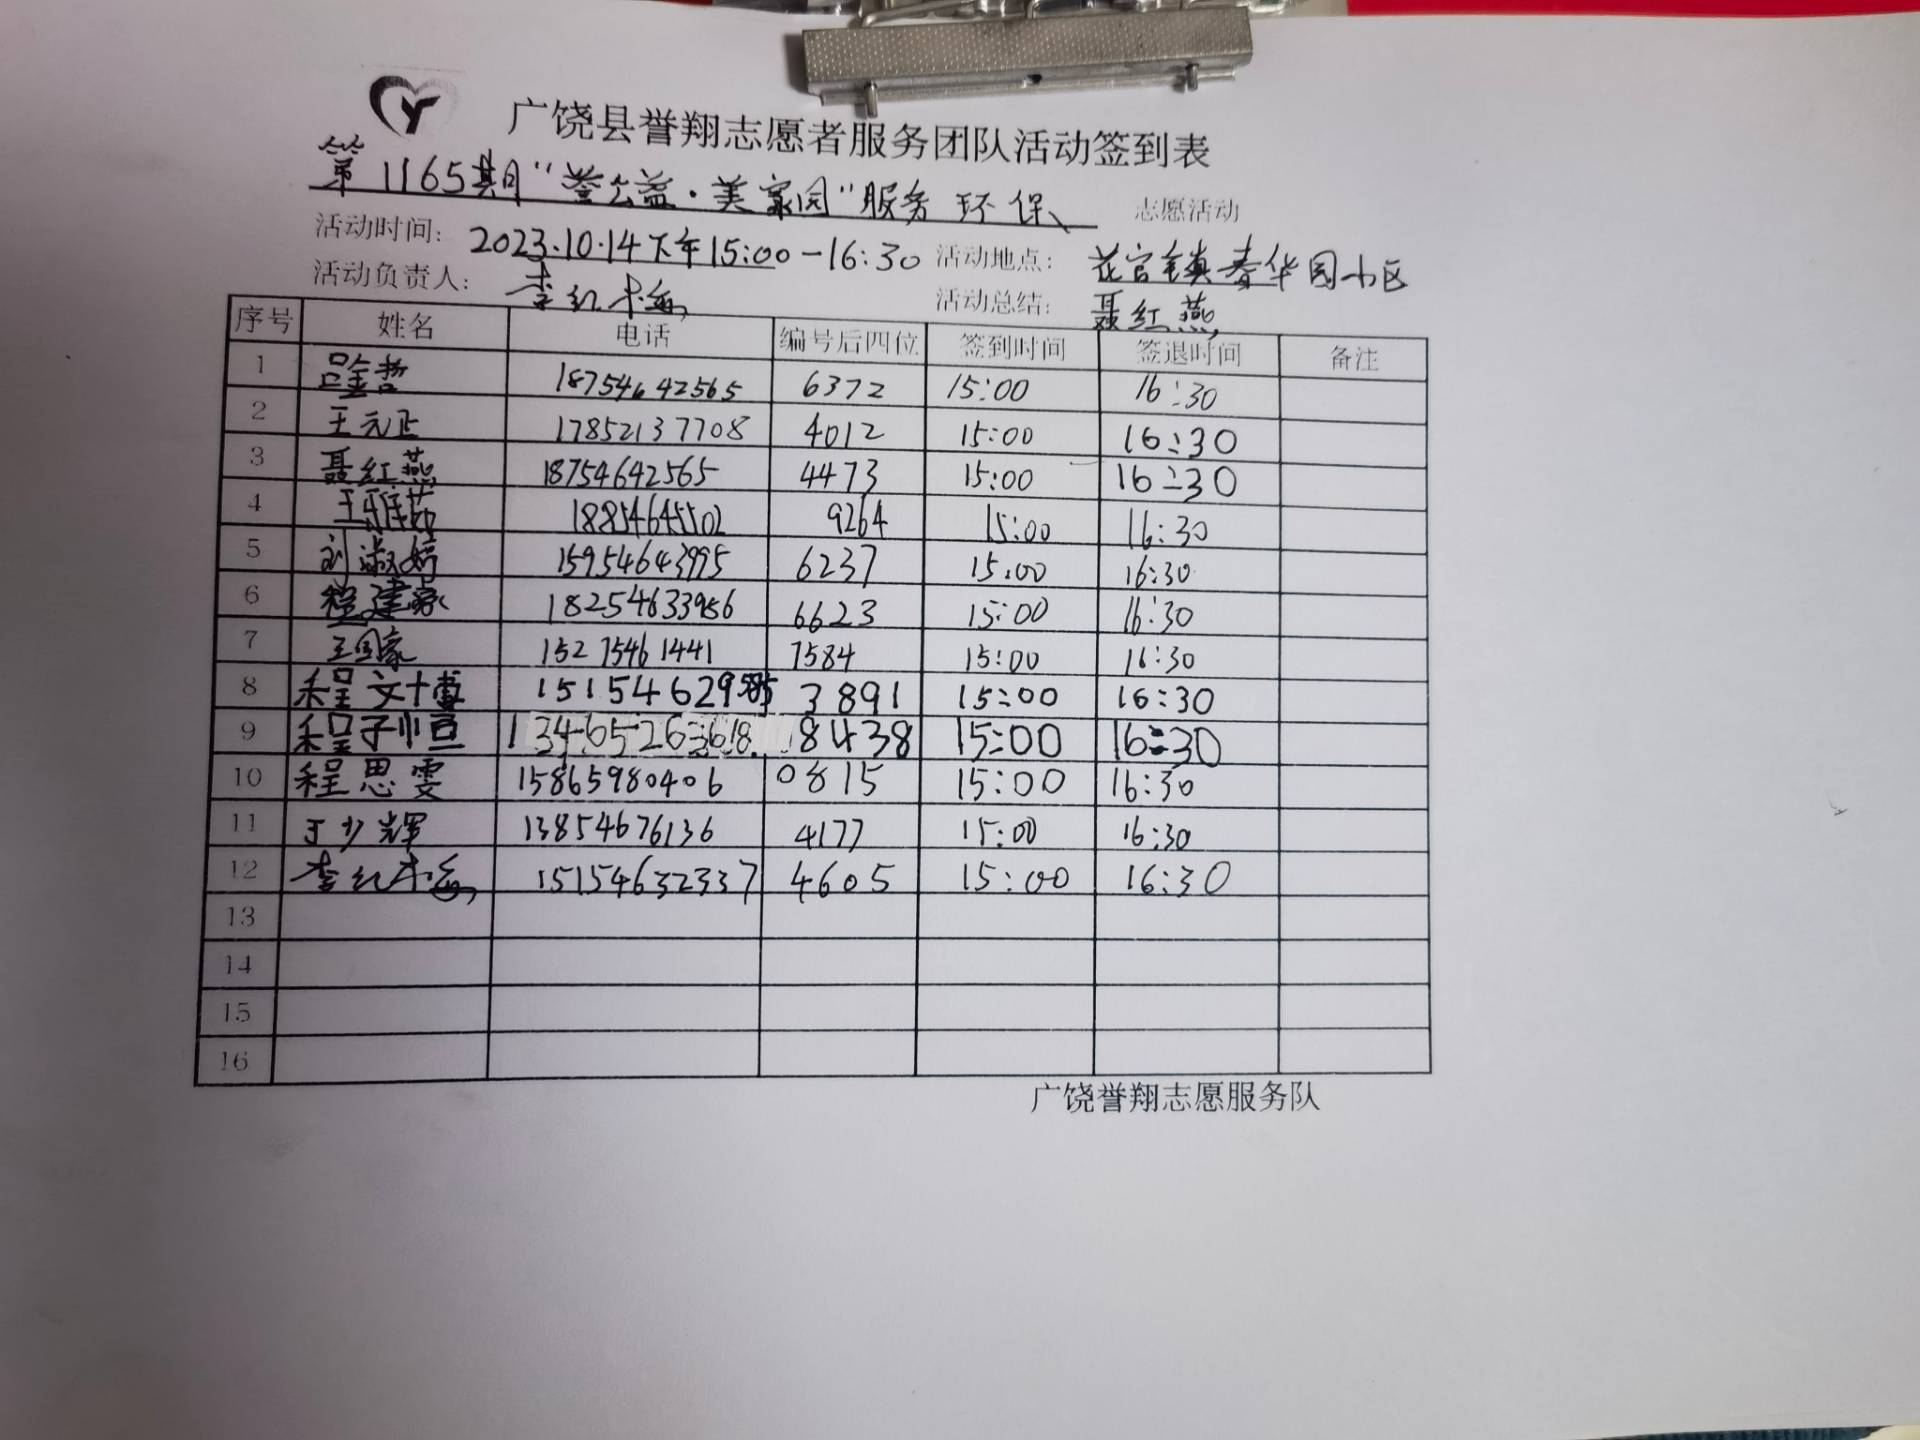 广饶县誉翔志愿者服务团队活动签到表
第1165期"誉公益·美家园"服务 环保 志愿活动
活动时间: 2023.10.14下午15:00-16:30 活动地点: 花官镇春华园小区
活动负责人: 李红梅 活动总结: 聂红燕
序号 姓名 电话 编号后四位 签到时间 签退时间 备注
1 吕金哲 18754642565 6372 15:00 16:30
2 王元正 17852137708 4012 15:00 16:30
3 聂红燕 18754642565 4473 15:00 16:30
4 王雅茹 18854645502 9264 15:00 16:30
5 刘淑婷 15954643995 6237 15:00 16:30
6 程建家 18254633986 6623 15:00 16:30
7 王国豪 15275461441 7584 15:00 16:30
8 程文博 3891 15:00 16:30
9 程子恒 13465263618 8438 15:00 16:30
10 程思雯 15865980406 0815 15:00 16:30
11 于少辉 13854676136 4177 15:00 16:30
12 李红梅 15154632337 4605 15:00 16:30
13
14
15
16
广饶誉翔志愿服务队